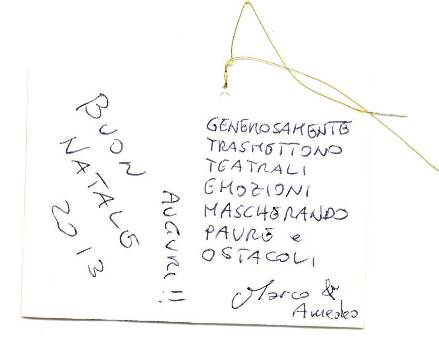 BUON
NATALE
2013
AUGURI!!
GENEROSAMENTE
TRASMETTONO
TEATRALI
EMOZIONI
MASCHERANDO
PAURE e
OSTACOLI
Marco &
Amedeo